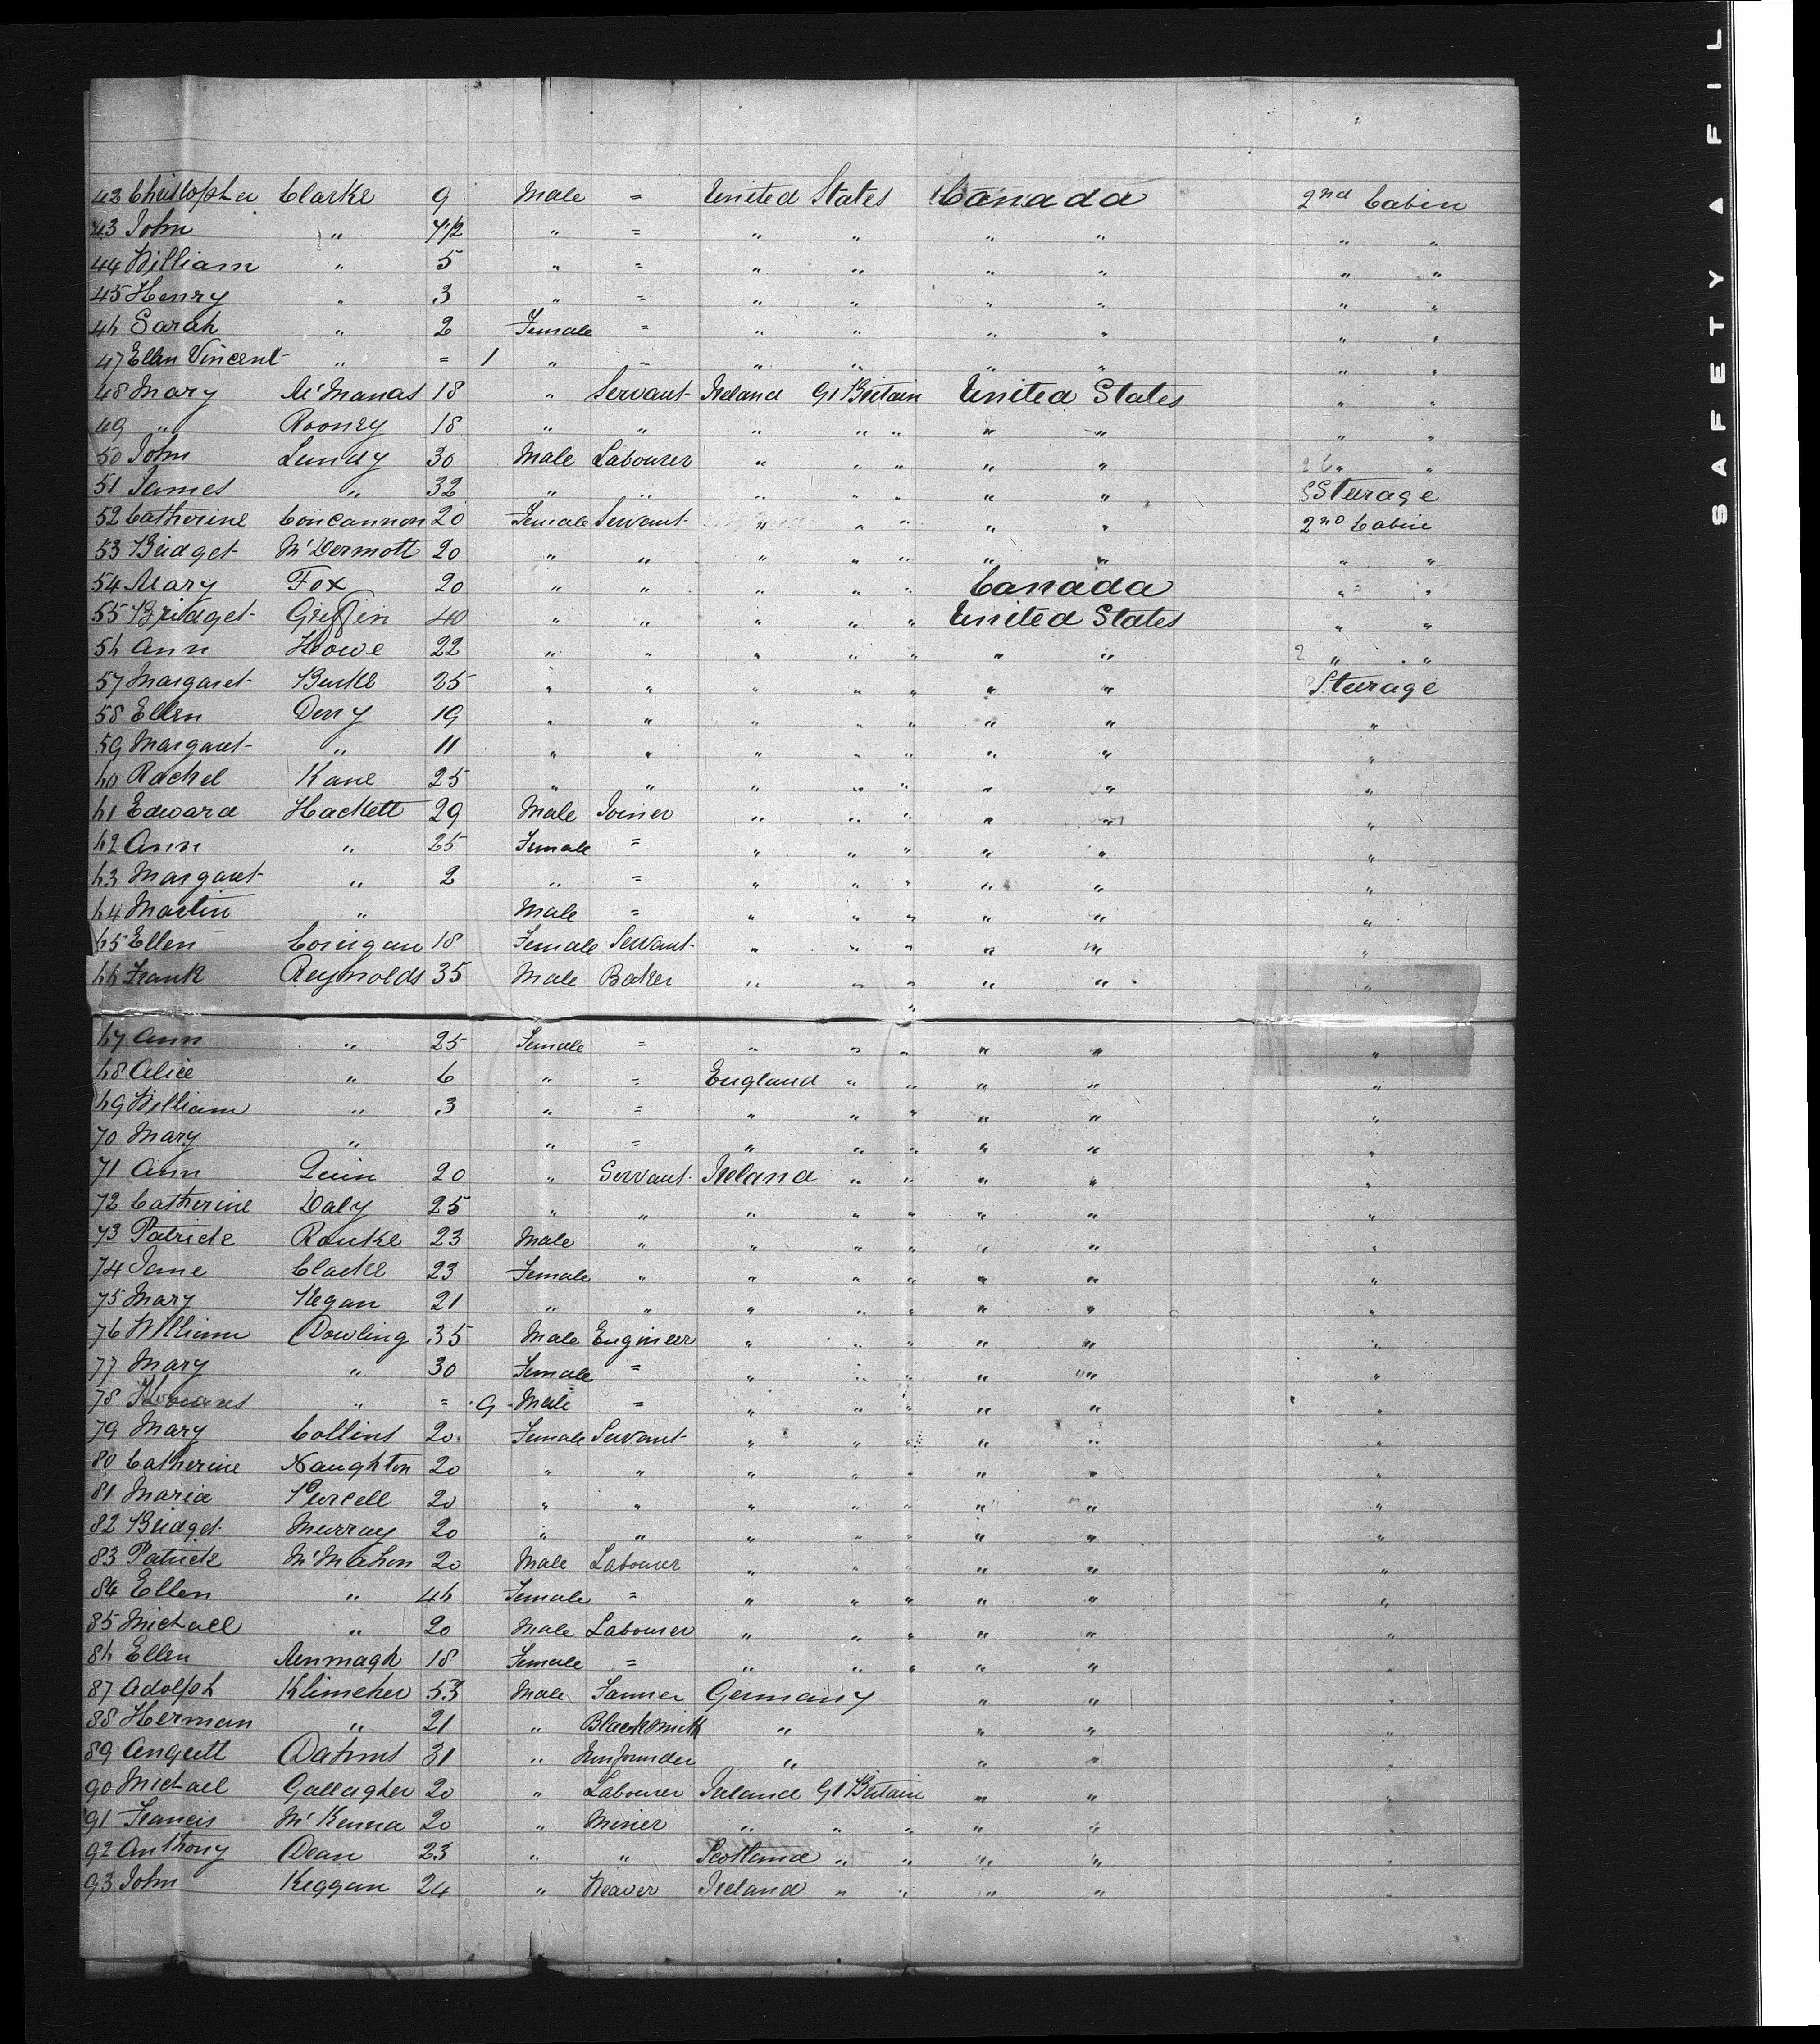 42 Christopher Clarke 9 Male = United States Canada 2nd Cabin
43 John " 7 1/2 " = " " " " " "
44 William " 5 " = " " " " " "
45 Henry " 3 " = " " " " " "
46 Sarah " 2 Female = " " " " " "
47 Ellen Vincent " = 1 " = " " " " " "
48 Mary McManas 18 " Servant Ireland Gt Britain United States " "
49 " Rooney 18 " " " " " " " " "
50 John Lundy 30 Male Labourer " " " " " 2 C " "
51 James " 32 " " " " " " " Sturage
52 Catherine Concannon 20 Female Servant " " " " " 2nd Cabin
53 Bridget McDermott 20 " " " " " " " " "
54 Mary Fox 20 " " " " " Canada " "
55 Bridget Griffin 40 " " " " " United States " "
56 Ann Howe 22 " " " " " " " 2 " "
57 Margaret Burke 25 " " " " " " " Sturage
58 Ellen Deny 19 " " " " " " " "
59 Margaret " 11 " " " " " " " "
60 Rachel Kane 25 " " " " " " " "
61 Edward Hackett 29 Male Joiner " " " " " "
62 Ann " 25 Female = " " " " " "
63 Margaret " 2 " = " " " " " "
64 Martin " Male = " " " " " "
65 Ellen 18 Female Servant " " " " " "
66 Frank Reynolds 35 Male Baker " " " " " "
67 Ann " 25 Female = " " " " " "
68 Alice " 6 " = England " " " " "
69 William " 3 " = " " " " " "
70 Mary " " = " " " " " "
71 Ann Quin 20 " Servant Ireland " " " " "
72 Catherine Daly 25 " " " " " " " "
73 Patrick Rourke 23 Male " " " " " " "
74 Jane Clarke 23 Female " " " " " " "
75 Mary Kegan 21 " " " " " " " "
76 William Dowling 35 Male Engineer " " " " " "
77 Mary " 30 Female = " " " " " "
78 " = 9 Male = " " " " " "
79 Mary Collins 20 Female Servant " " " " " "
80 Catherine Naughton 20 " " " " " " " "
81 Maria Purcell 20 " " " " " " " "
82 Bridget Murray 20 " " " " " " " "
83 Patrick McMahon 20 Male Labourer " " " " " "
84 Ellen " 46 Female = " " " " " "
85 Michael " 20 Male Labourer " " " " " "
86 Ellen 18 Female = " " " " " "
87 Adolph Klimeker 53 Male Tanner Germany " " "
88 Herman " 21 " Blacksmith " " " "
89 Dahms 31 " Ironfounder " " " "
90 Michael Gallagher 20 " Labourer Ireland Gt Britain " " "
91 Francis McKenna 20 " Miner " " " " " "
92 Anthony Dean 23 " " Scotland " " " " "
93 John Keggan 24 " Weaver Ireland " " " " "
SAFETY FIL